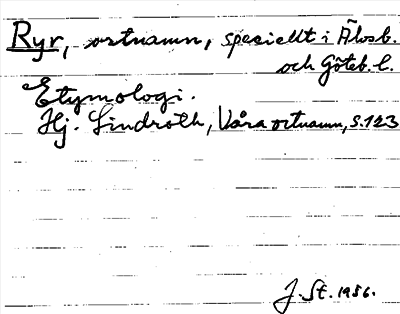 Ryr, ortnamn, speciellt i Älvsb.
och Göteb. l.
Etymologi.
Hj. Lindroth, Våra ortnamn, s. 123
J. St. 1956.